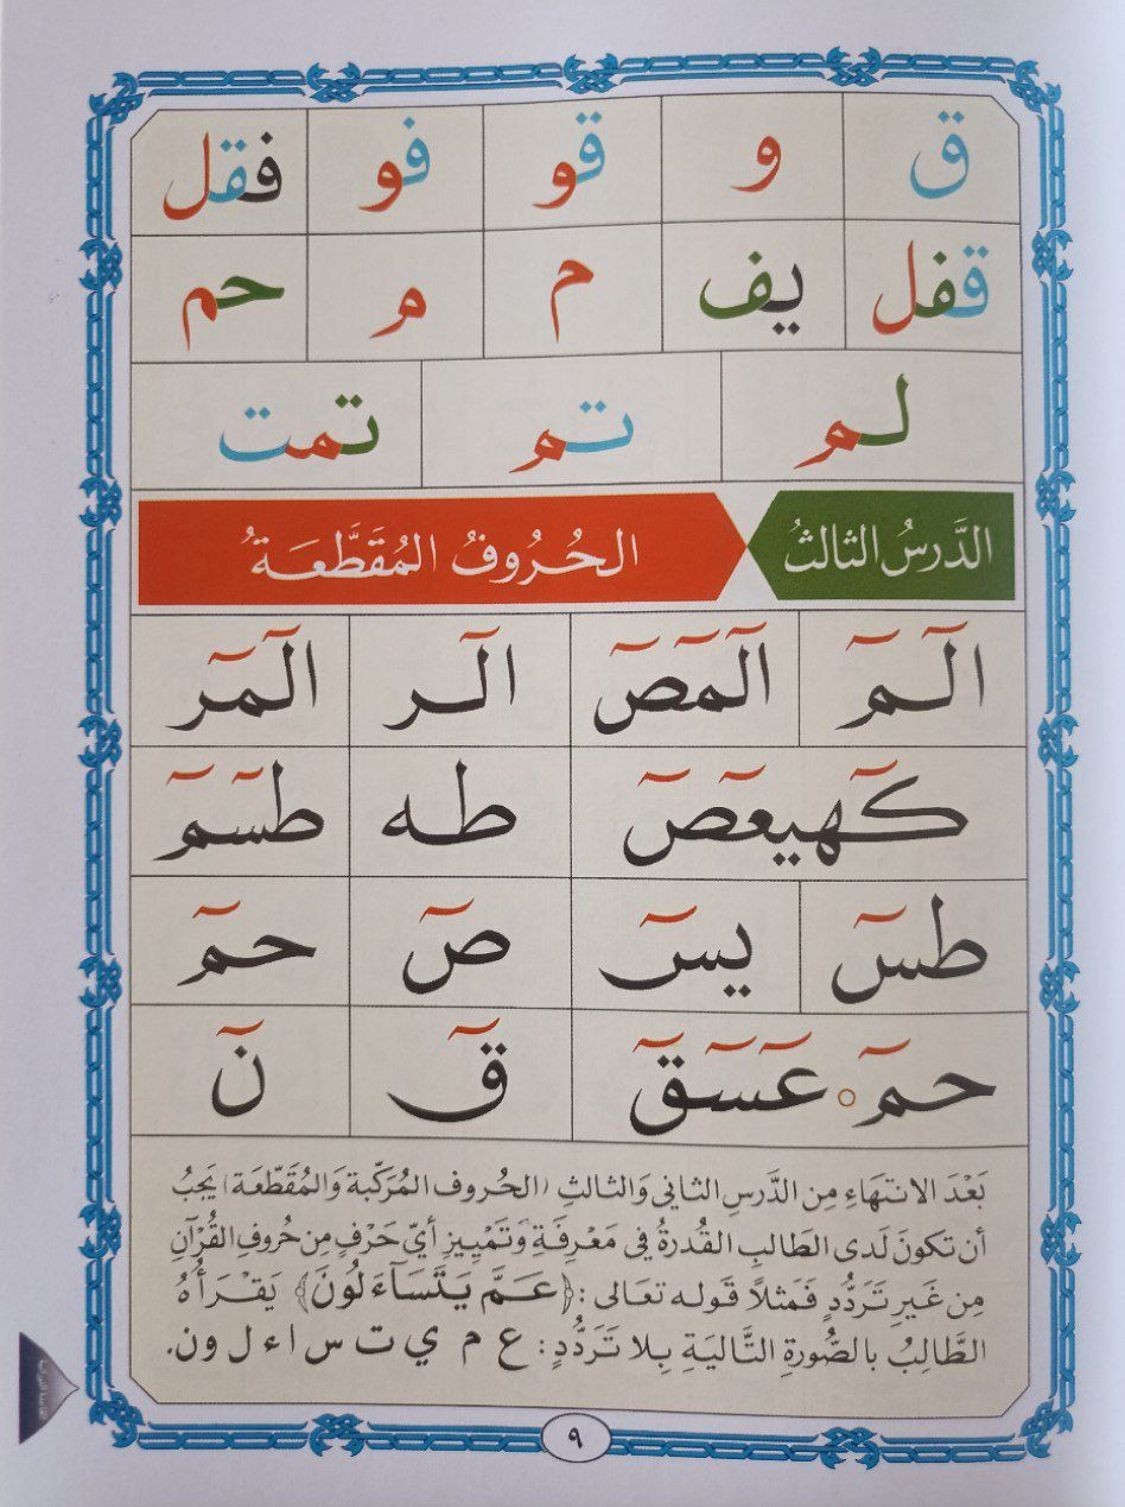 ق و قو فو فقل
قفل يف م م حم
لم تم تمت
الدَّرسُ الثالثُ الحُرُوفُ المُقَطَّعَةُ
الٓمٓ الٓمٓصٓ الٓر الٓمٓر
كٓهيعٓصٓ طه طسٓمٓ
طسٓ يسٓ صٓ حمٓ
حمٓ ۝ عٓسٓقٓ قٓ نٓ
بَعْدَ الانتهَاءِ مِن الدَّرسِ الثاني وَالثالثِ (الحُروف المُرَكّبة وَالمُقَطّعَة) يَجبُ
أن تكونَ لَدى الطَالبِ القُدرةُ في مَعْرِفَةِ وَتَمْيِيزِ أيّ حَرْفٍ مِن حُروفِ القُرْآنِ
مِن غَيرِ تَرَدُّدٍ فَمَثلاً قَولـه تعَالى :﴿عَـمَّ يَتَسَآءَلُونَ﴾ يَقـْرَأُهُ
الطَّالِبُ بالصُّورةِ التَّاليَةِ بِلا تَرَدُّدٍ: ع م ي ت س ا ء ل و ن.
٩